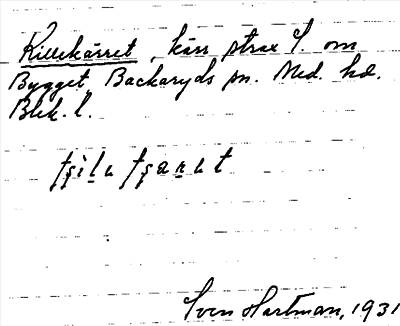 Killekärret, kärr strax S. om
Bygget, Backaryds sn. Med. hd.
Blek. l.
Sven Hartman, 1931